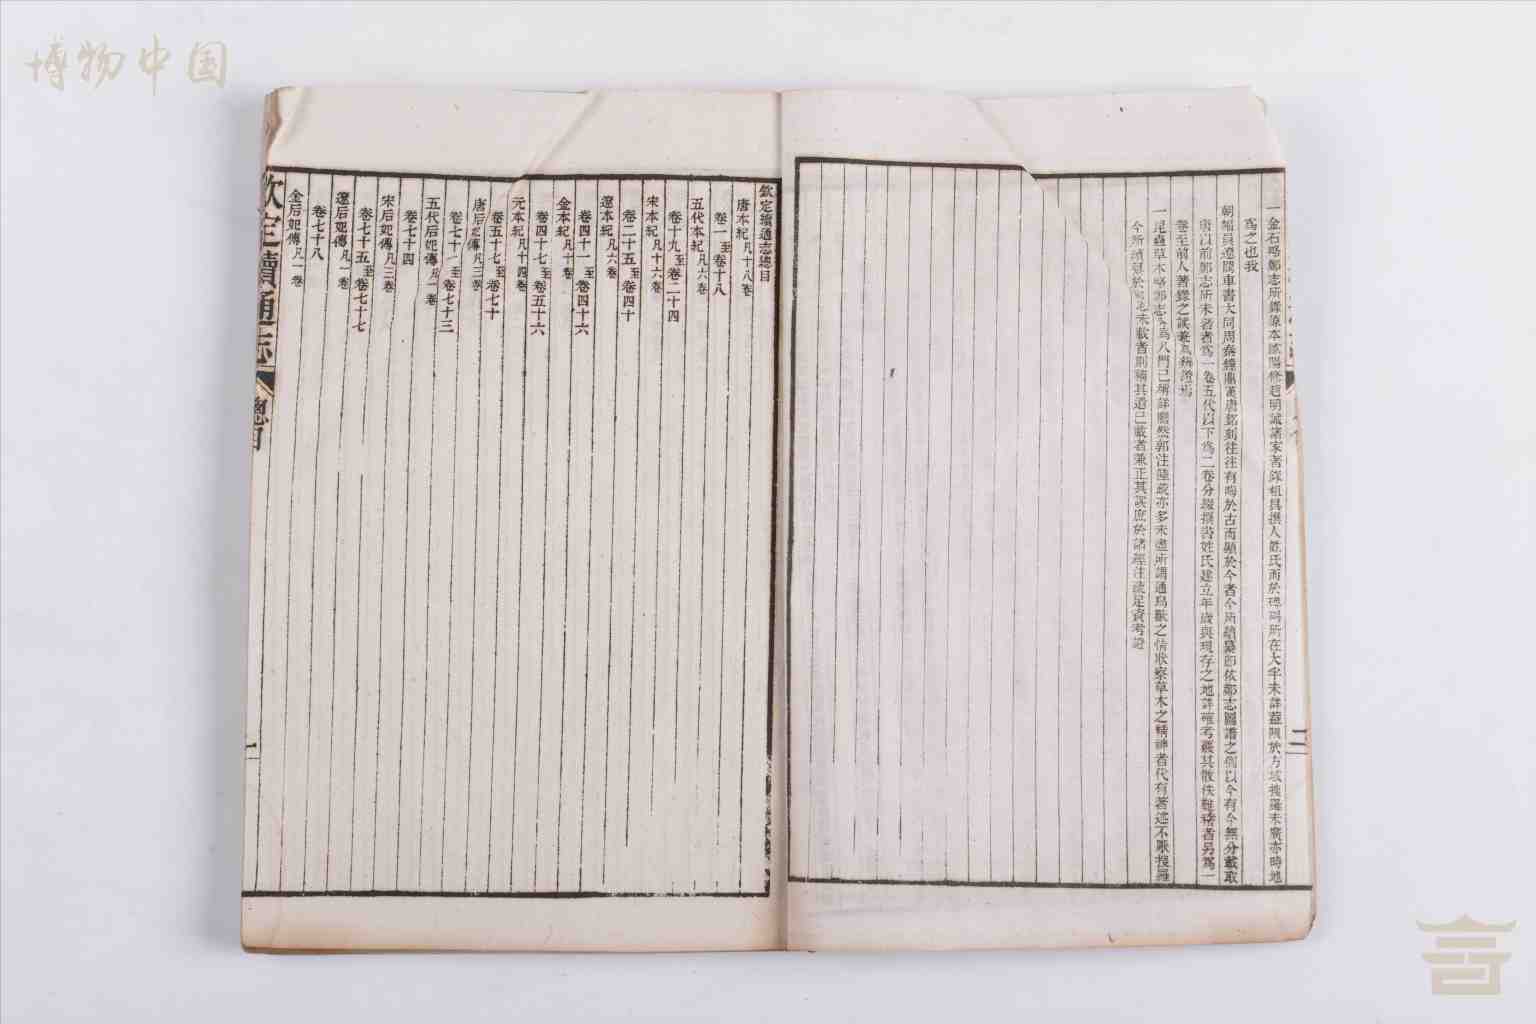 博物中国
一金石略鄭志所錄原本歐陽修趙明誠諸家著錄粗具撰人姓氏而於碑碣所在大半未詳蓋限於方域搜羅未廣亦時地
爲之也我
朝幅員遼闊車書大同周秦鐘鼎漢唐銘刻往往有晦於古而顯於今者今所續纂即依鄭志圖譜之例以今有今無分載取
唐以前鄭志所未著者爲一卷五代以下爲二卷分綴撰書姓氏建立年歲與現存之地詳確考覈其散佚難稽者另爲一
卷至前人著錄之誤兼爲辨證焉
一昆蟲草木略鄭志分爲八門已稱詳贍然郭注陸疏亦多未盡所謂通鳥獸之情狀察草木之精神者代有著述不厭搜羅
今所續纂於鄭志未載者則補其遺已載者兼正其誤庶於諸經注疏足資考證
二
欽定續通志總目
唐本紀凡十八卷
卷一至卷十八
五代本紀凡六卷
卷十九至卷二十四
宋本紀凡十六卷
卷二十五至卷四十
遼本紀凡六卷
卷四十一至卷四十六
金本紀凡十卷
卷四十七至卷五十六
元本紀凡十四卷
卷五十七至卷七十
唐后妃傳凡三卷
卷七十一至卷七十三
五代后妃傳凡一卷
卷七十四
宋后妃傳凡三卷
卷七十五至卷七十七
遼后妃傳凡一卷
卷七十八
金后妃傳凡一卷
欽定續通志 總目
一